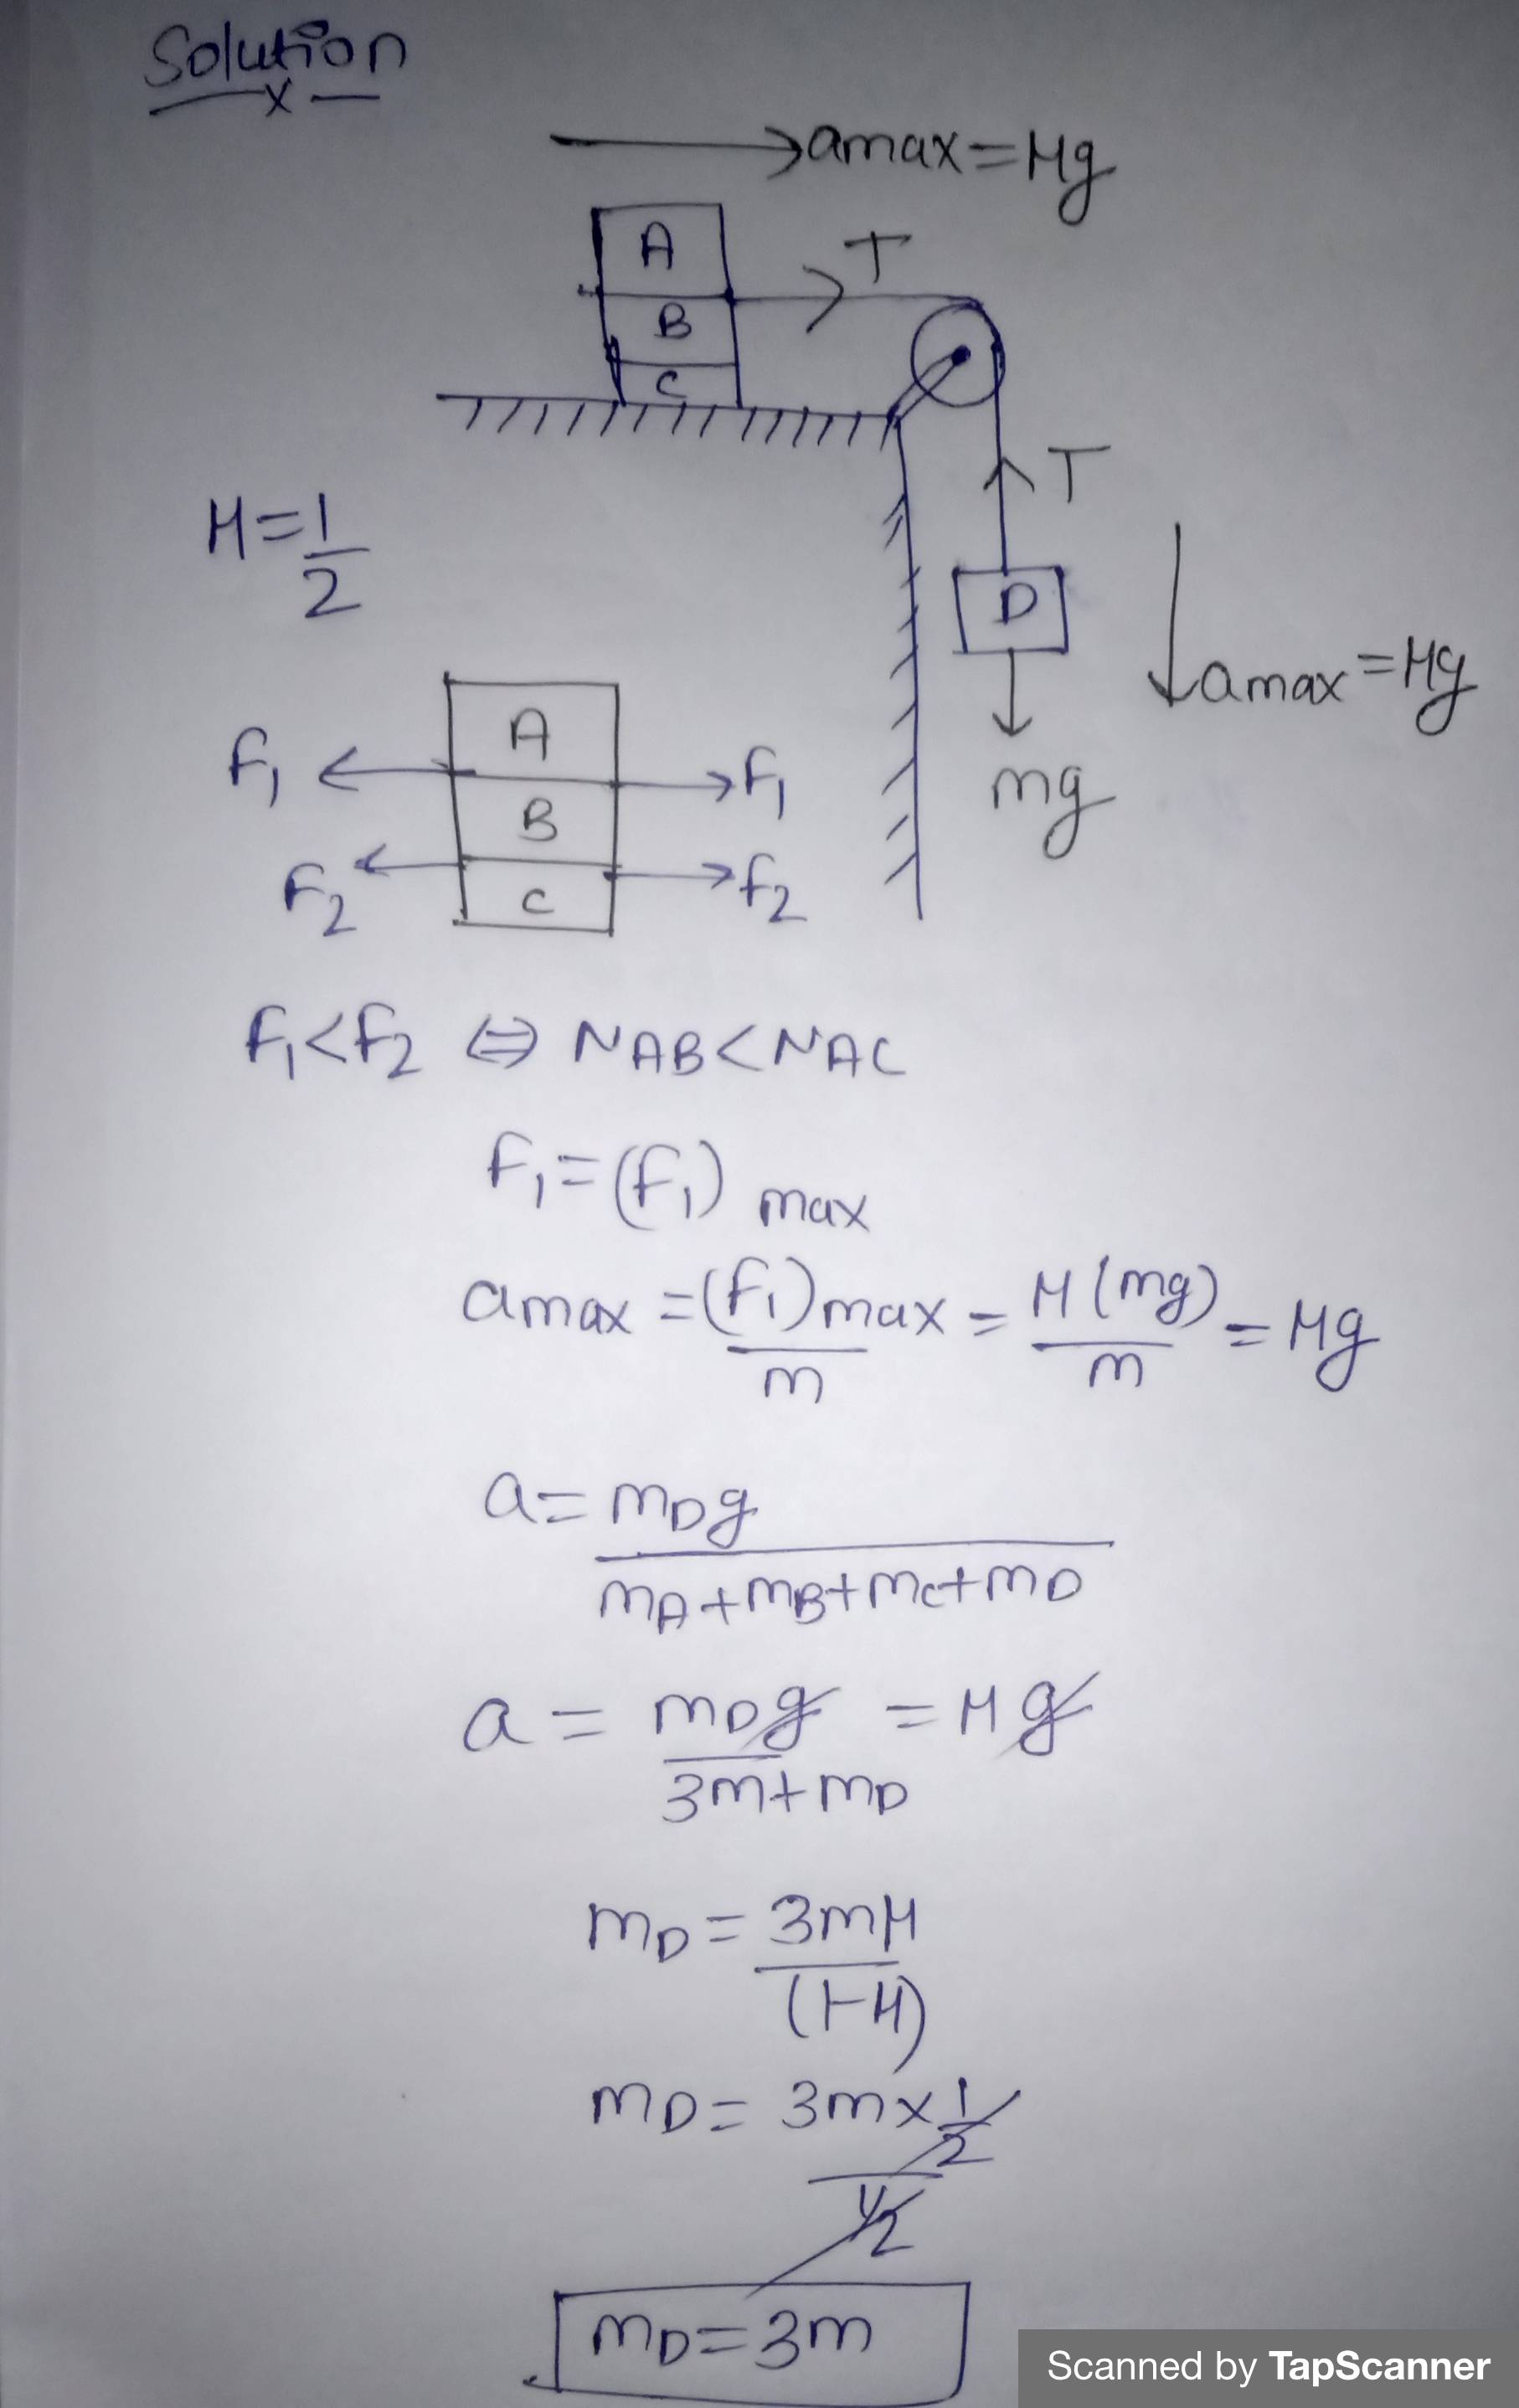 Solution
x
amax=μg
A
T
B
C
T
μ=1/2
D
amax=μg
mg
A
f₁
f₁
B
f₂
f₂
C
f₁<f₂ ⇔ NAB<NAC
f₁=(f₁) max
amax=(f₁)max/m=μ(mg)/m=μg
a=mDg/mA+mB+mC+mD
a=mDg/3m+mD=μg
mD=3mμ/(1-μ)
mD=3m×1/2/1/2
mD=3m
Scanned by TapScanner